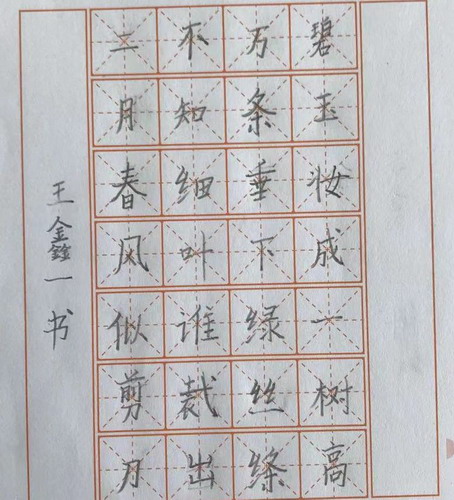 碧玉妆成一树高
万条垂下绿丝绦
不知细叶谁裁出
二月春风似剪刀
王鑫一书